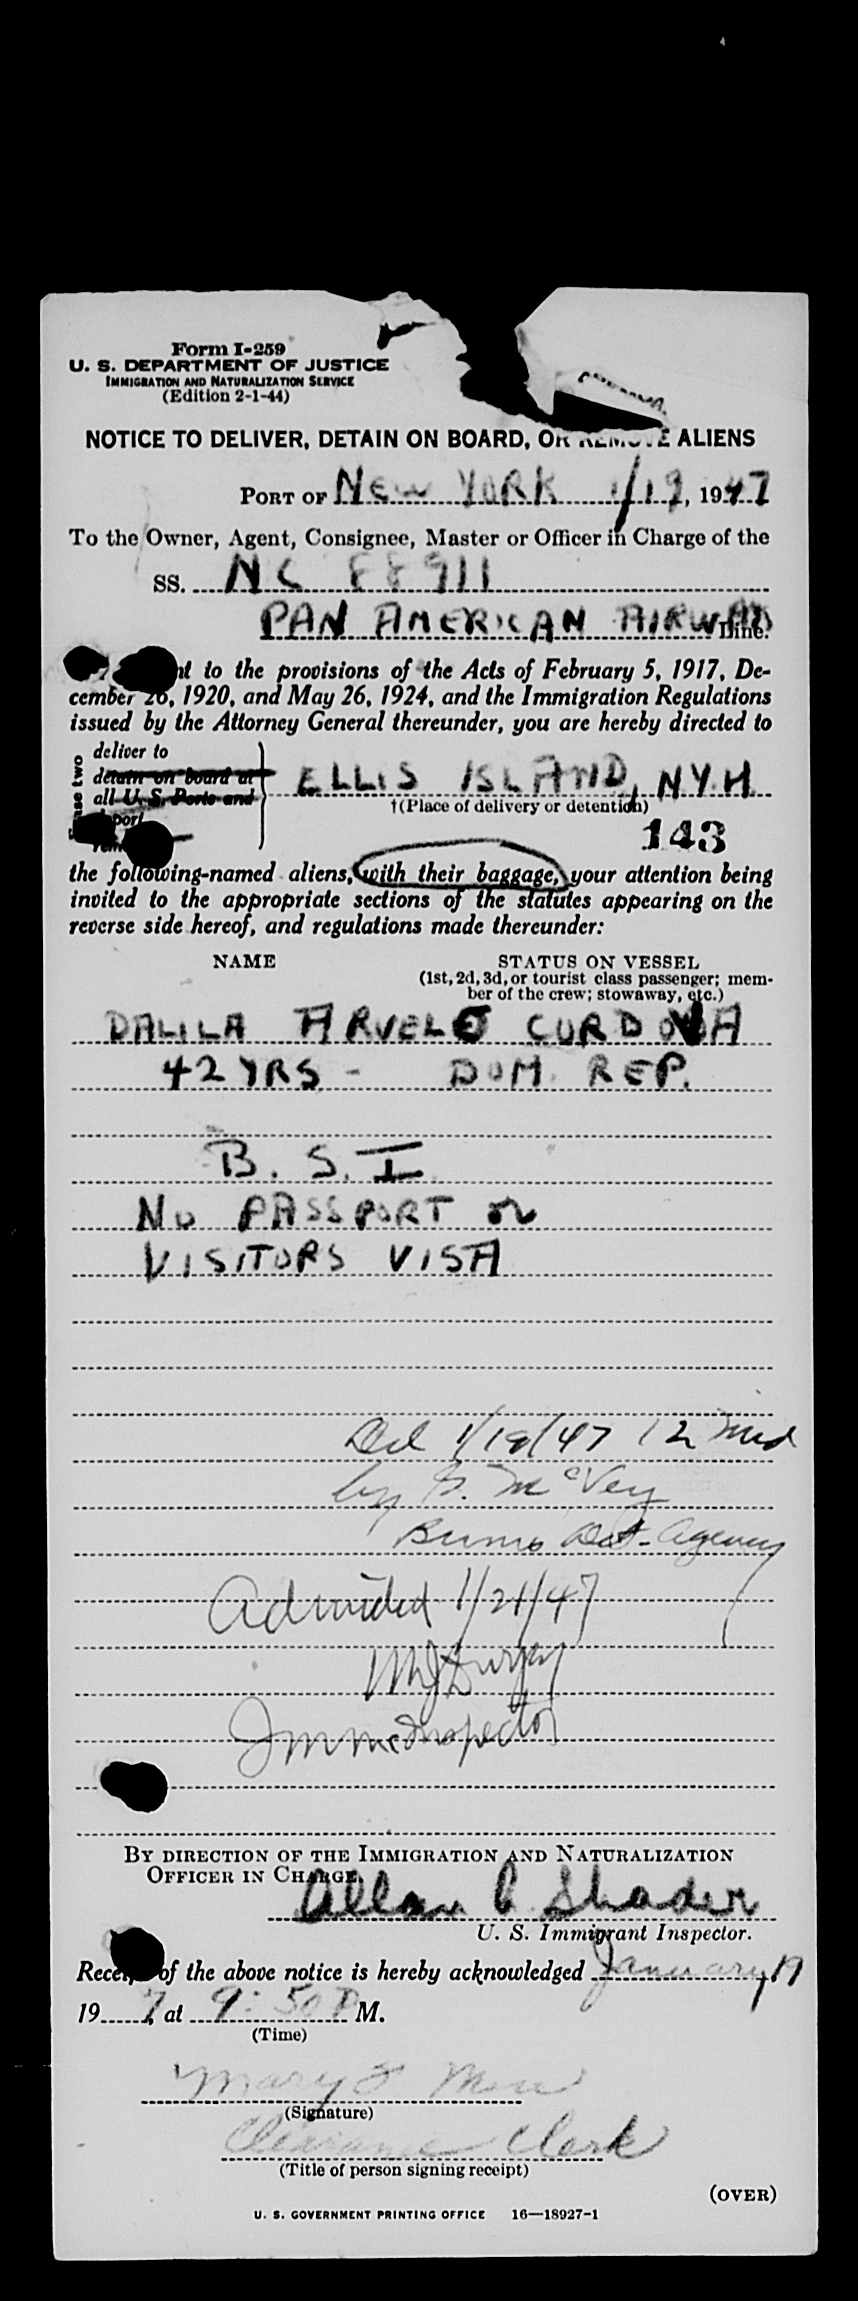 Form I-259
U. S. DEPARTMENT OF JUSTICE
IMMIGRATION AND NATURALIZATION SERVICE
(Edition 2-1-44)
NOTICE TO DELIVER, DETAIN ON BOARD, OR REMOVE ALIENS
PORT OF NEW YORK 1/19, 1947
To the Owner, Agent, Consignee, Master or Officer in Charge of the
SS. NC 88911
PAN AMERICAN AIRWAYS Line.
to the provisions of the Acts of February 5, 1917, De-
cember 26, 1920, and May 26, 1924, and the Immigration Regulations
issued by the Attorney General thereunder, you are hereby directed to
deliver to
detain on board at
all U. S. Ports and
ELLIS ISLAND, N.Y.H.
†(Place of delivery or detention)
two
143
the following-named aliens, with their baggage, your attention being
invited to the appropriate sections of the statutes appearing on the
reverse side hereof, and regulations made thereunder:
NAME STATUS ON VESSEL
(1st, 2d, 3d, or tourist class passenger; mem-
ber of the crew; stowaway, etc.)
DALILA ARVELO CORDOVA
42 YRS - DOM. REP.
B. S. I.
NO PASSPORT or
VISITORS VISA
Del 1/19/47 12 Mid
by G. McVey
Burns Det. Agency
Admitted 1/21/47
Imm Inspector
BY DIRECTION OF THE IMMIGRATION AND NATURALIZATION
OFFICER IN CHARGE,
Allan C. Shader
U. S. Immigrant Inspector.
Receipt of the above notice is hereby acknowledged January 19
19 7 at 9:50 P M.
(Time)
Mary
(Signature)
Clearance Clerk
(Title of person signing receipt)
(OVER)
U. S. GOVERNMENT PRINTING OFFICE 16—18927-1